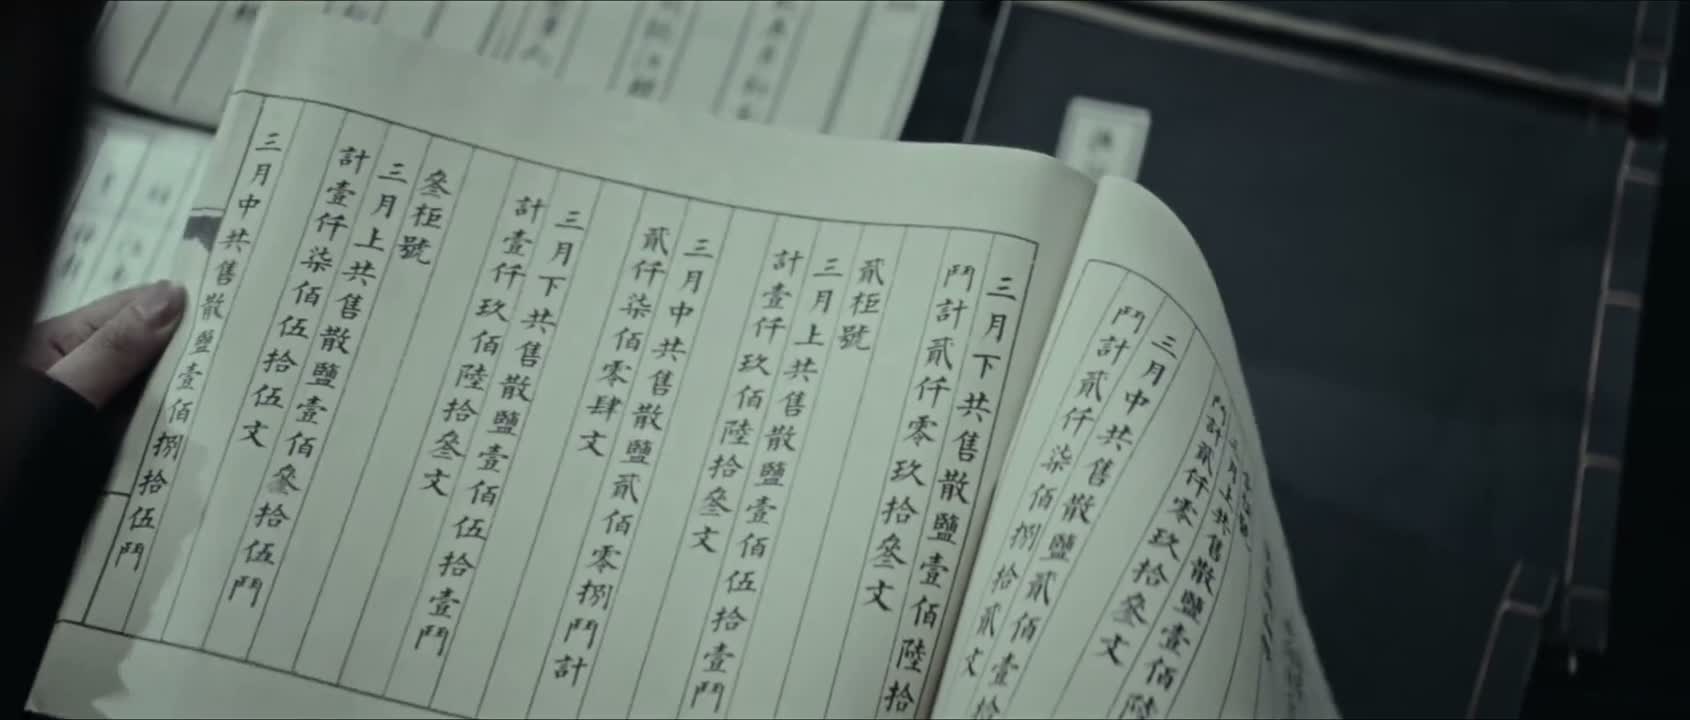 三月上共售散鹽壹佰陸
鬥計貳仟零玖拾叄文
三月中共售散鹽貳佰壹拾
鬥計貳仟柒佰捌拾貳文
三月下共售散鹽壹佰陸拾
鬥計貳仟零玖拾叄文
貳柜號
三月上共售散鹽壹佰伍拾壹鬥
計壹仟玖佰陸拾叄文
三月中共售散鹽貳佰零捌鬥計
貳仟柒佰零肆文
三月下共售散鹽壹佰伍拾壹鬥
計壹仟玖佰陸拾叄文
叄柜號
三月上共售散鹽壹佰叄拾伍鬥
計壹仟柒佰伍拾伍文
三月中共售散鹽壹佰捌拾伍鬥